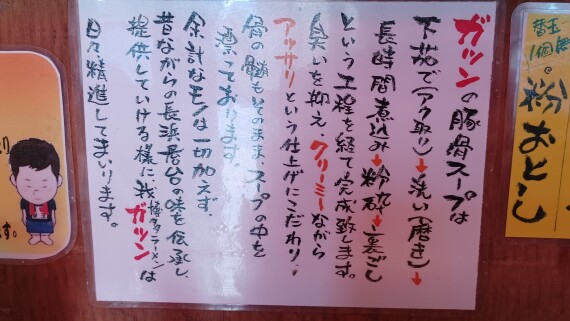 ガツンの豚骨スープは
下茹で(アク取り)→洗い(磨き)→
長時間煮込み→粉砕→裏ごし
という工程を経て完成致します。
臭いを抑え、クリーミーながら
アッサリという仕上げにこだわり、
骨の髄もそのまま、スープの中を
漂っております。
余計なモノは一切加えず、
昔ながらの長浜屋台の味を伝承し、
提供していける様に我博多ラーメンガツンは
日々精進してまいります。
替玉
1個
粉おとし